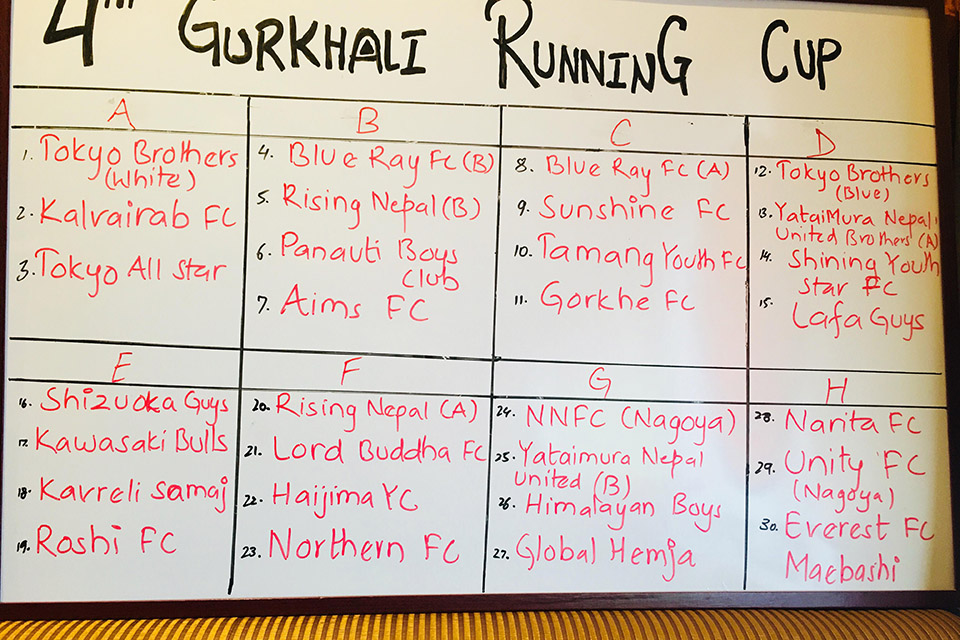 4TH GURKHALI RUNNING CUP
A
1. Tokyo Brothers
(White)
2. Kalvairab FC
3. Tokyo All Star
B
4. Blue Ray FC (B)
5. Rising Nepal (B)
6. Panauti Boys
Club
7. Aims FC
C
8. Blue Ray FC (A)
9. Sunshine FC
10. Tamang Youth FC
11. Gorkhe FC
D
12. Tokyo Brothers
(Blue)
13. YataiMura Nepal
United Brothers (A)
14. Shining Youth
Star FC
15. Lafa Guys
E
16. Shizuoka Guys
17. Kawasaki Bulls
18. Kavreli Samaj
19. Roshi FC
F
20. Rising Nepal (A)
21. Lord Buddha FC
22. Haijima YC
23. Northern FC
G
24. NNFC (Nagoya)
25. Yataimura Nepal
United (B)
26. Himalayan Boys
27. Global Hemja
H
28. Narita FC
29. Unity FC
(Nagoya)
30. Everest FC
Maebashi